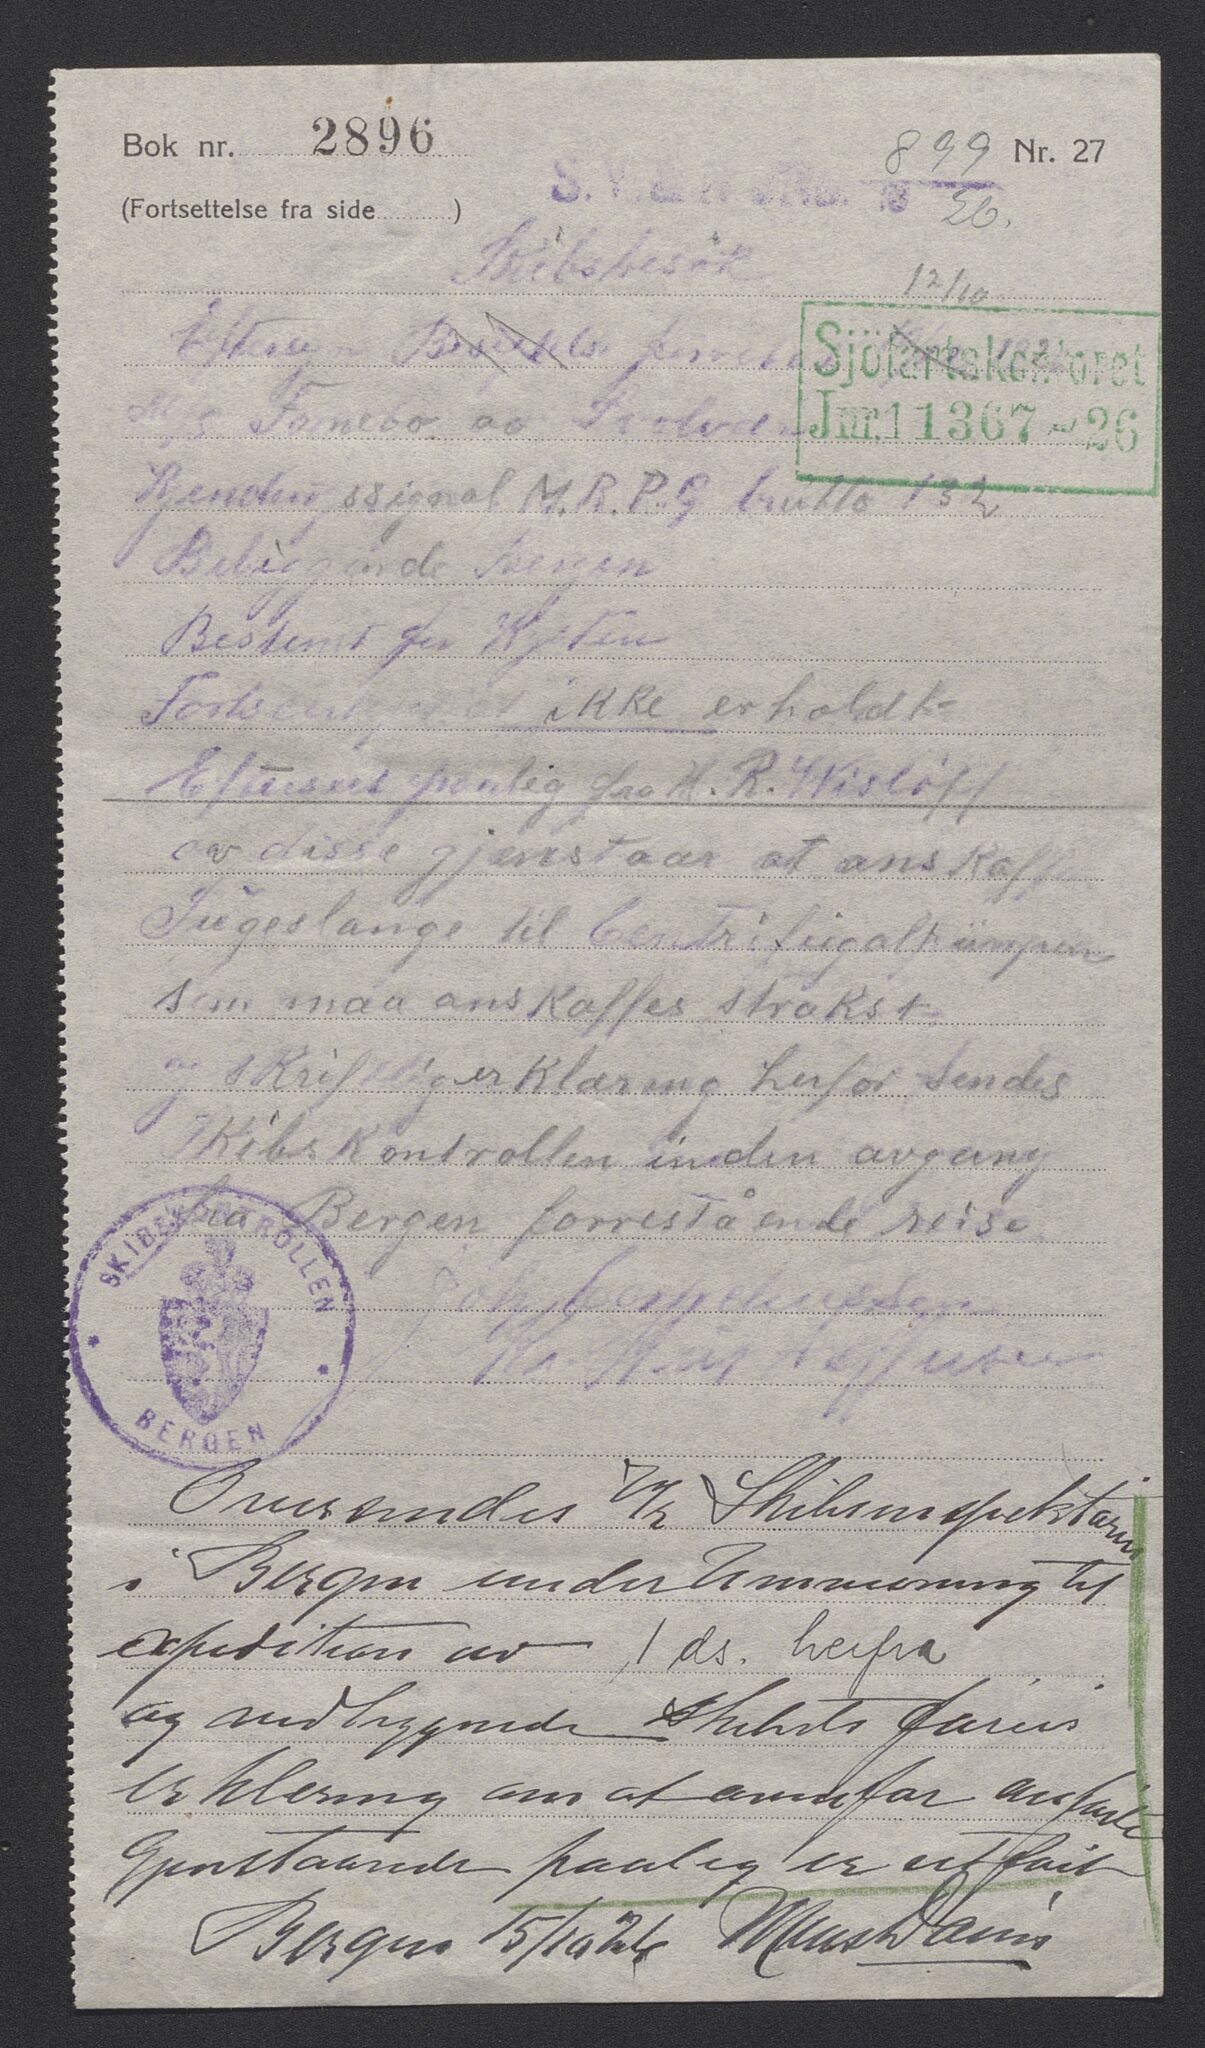 Bok nr. 2896
899 Nr. 27
(Fortsettelse fra side )
26.
Skibsbesök
12/10
Eftersyn Besigtelse foretat
Sjöfartskontoret
Jnr. 11367-26
M/S Famebo av Svolvær
Kjendingssignal M.R.P.G brutto 132
Beliggende Bergen
Bestemt for Kysten
ikke erholdt
Efterset pålig fra H. R. Wisløff
av disse gjenstaar at anskaff
Sugeslange til Centrifugalpumpen
som maa anskaffes strakst
og skriftlig erklæring herfor sendes
Skibskontrollen inden avgang
fra Bergen forrestående reise
SKIBSKONTROLLEN
BERGEN
Oversendes Skibsinspektøren
i Bergen under henvisning til
expedition av /1 ds. herfra
og vedlyggende skibets förers
erklering om at ovenfor anførte
Gjenstaaende paalæg er utført
Bergen 15/10 26